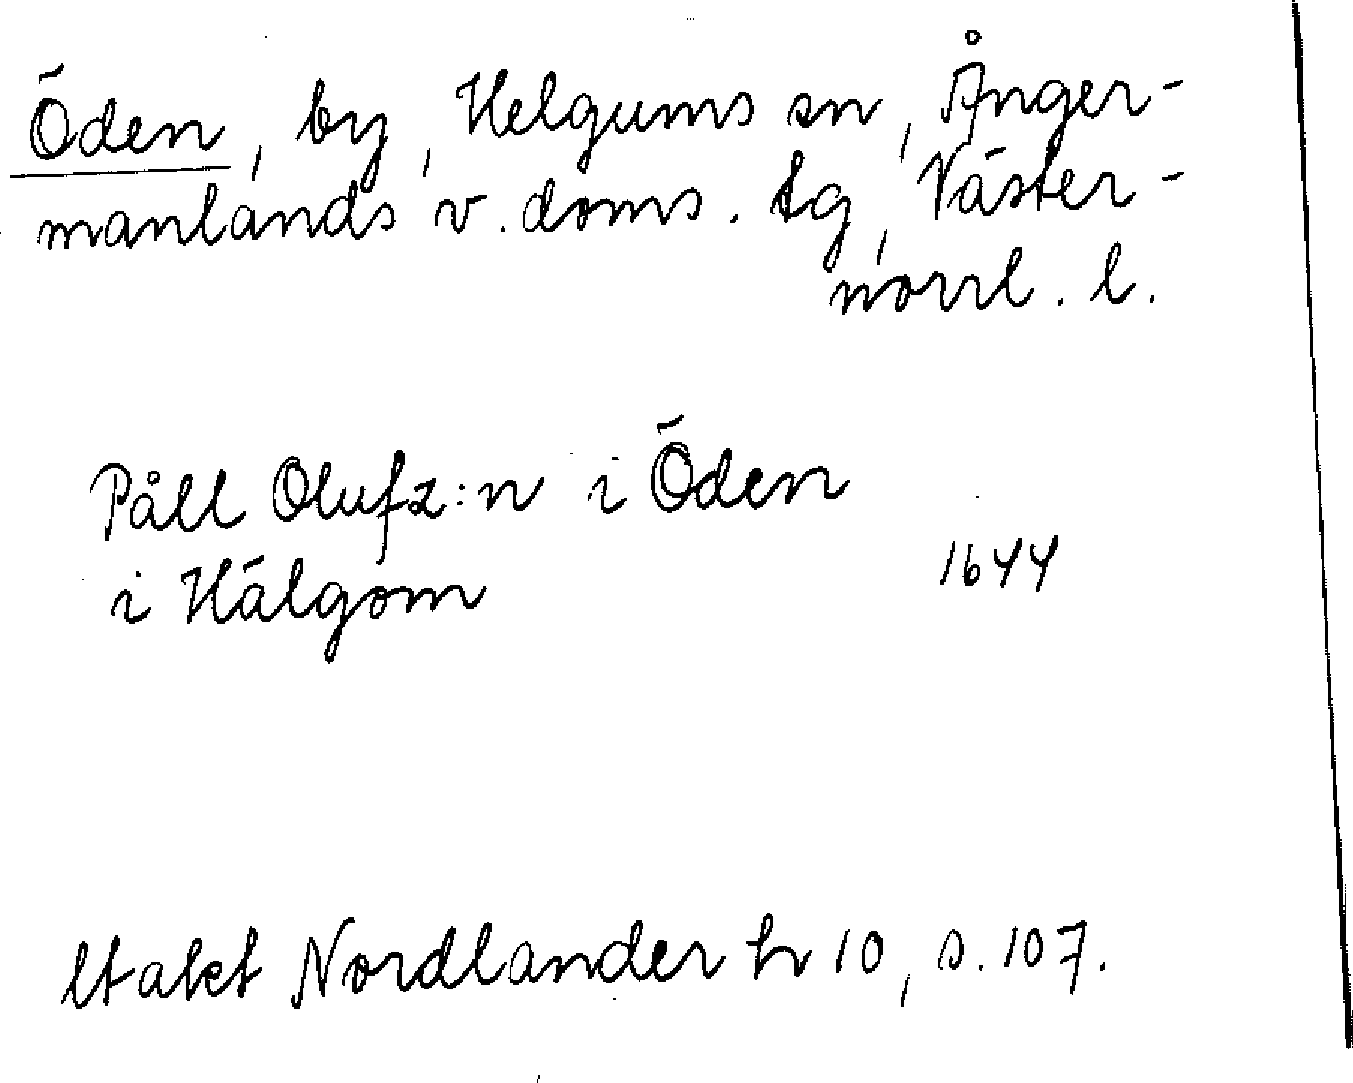 Öden, by, Helgums sn, Ånger-
manlands v. doms. tg, Väster-
norrl. l.
Påll Olufz:n i Öden
i Hälgom 1644
utakt Nordlander h 10, s. 107.